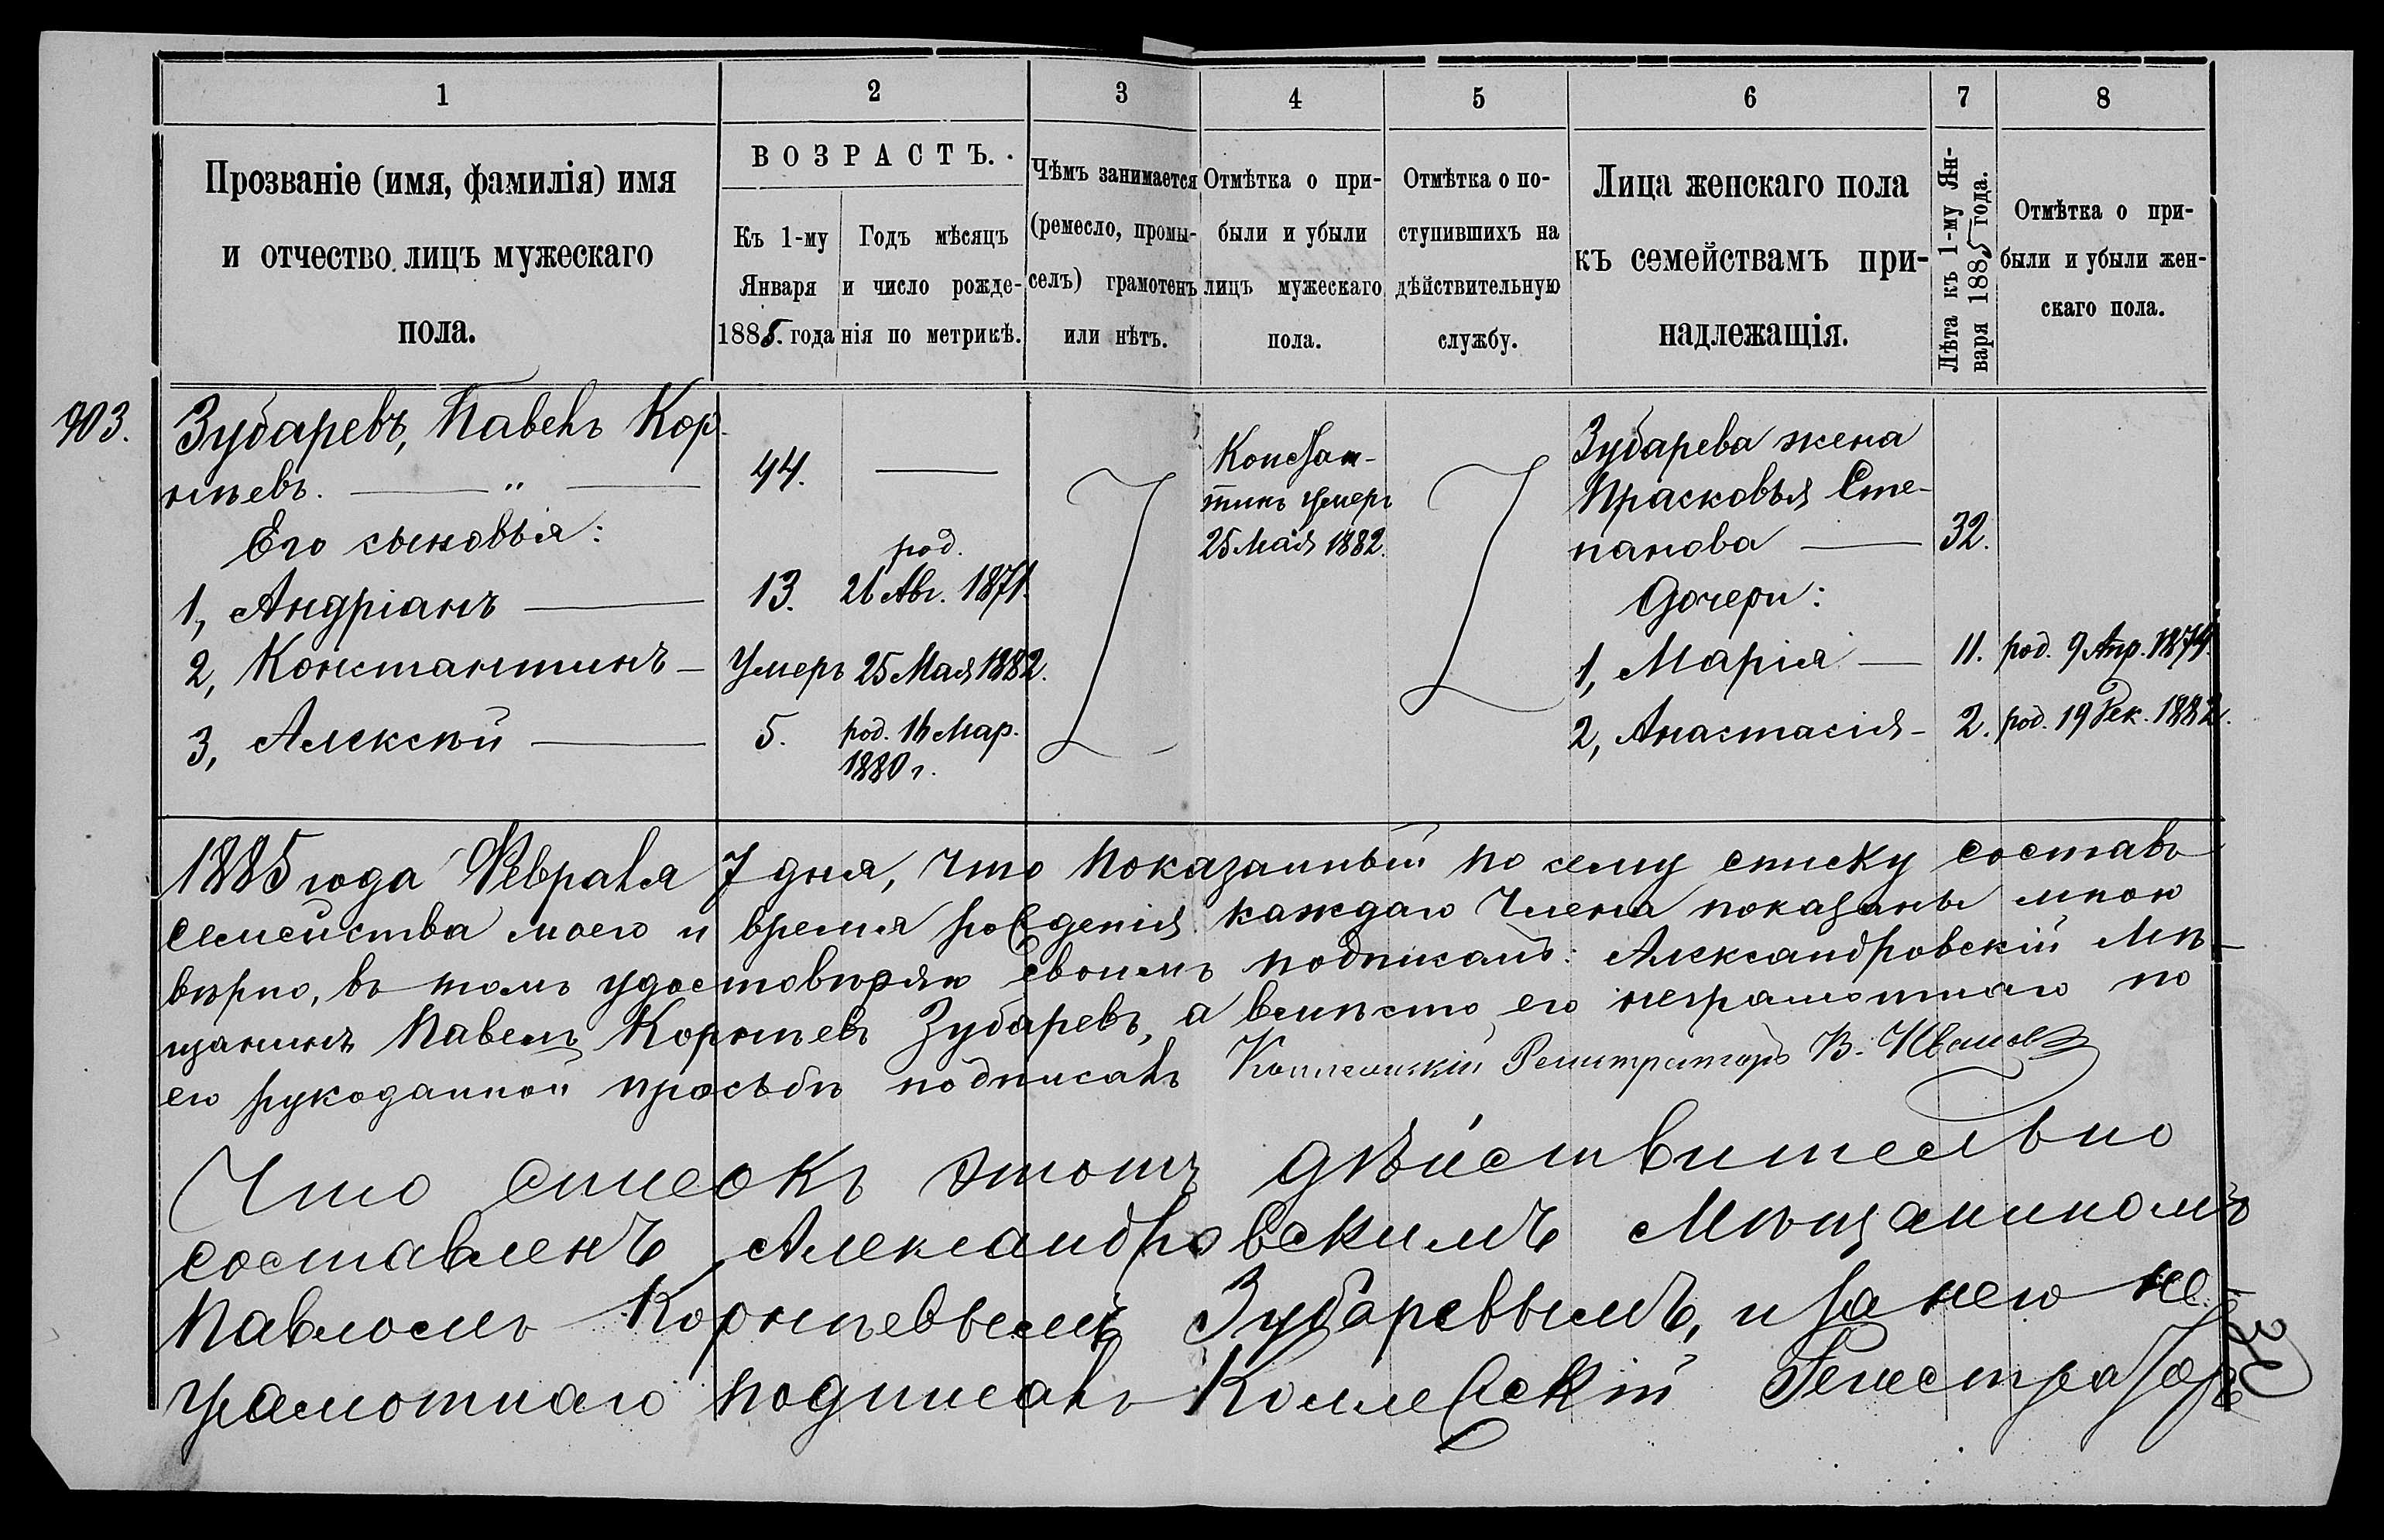 1
2
3
4
5
6
7
8
Прозваніе (имя, фамилія) имя
и отчество лицъ мужескаго
пола.
ВОЗРАСТЪ.
Къ 1-му
Января
1885. года
Годъ мѣсяцъ
и число рожде-
нія по метрикѣ.
Чѣмъ занимается
(ремесло, промы-
селъ) грамотенъ
или нѣтъ.
Отмѣтка о при-
были и убыли
лицъ мужескаго
пола.
Отмѣтка о по-
ступившихъ на
дѣйствительную
службу.
Лица женскаго пола
къ семействамъ при-
надлежащія.
Лѣта къ 1-му Ян-
варя 1885 года.
Отмѣтка о при-
были и убыли жен-
скаго пола.
Зубаревъ, Павелъ Кор-
нѣевъ. — „ —
44. —
Его сыновья:
1, Андріанъ —
13.
род.
26 Авг. 1871.
2, Константинъ —
Умеръ 25 Мая 1882.
3, Алексѣй —
5.
род. 16 Мар.
1880 г.
Констан-
тинъ умеръ
25 Мая 1882.
Зубарева жена
Прасковья Сте-
панова — 32.
Дочери:
1, Марія — 11. род. 9 Апр. 1874.
2, Анастасія — 2. род. 19 Дек. 1882.
1885 года Февраля 7 дня, что показанный по сему списку составъ
семейства моего и время рожденія каждаго члена показаны мною
вѣрно, въ томъ удостовѣряю своимъ подписомъ: Александровскій Мѣ-
щанинъ Павелъ Корнѣевъ Зубаревъ, а вмѣсто его неграмотнаго по
его рукоданной просьбѣ подписалъ Коллежскій Регистраторъ В. Ивановъ
Что списокъ этотъ дѣйствительно
составленъ Александровскимъ Мѣщаниномъ
Павломъ Корнѣевымъ Зубаревымъ, и за него не-
грамотнаго подписалъ Коллежскій Регистраторъ